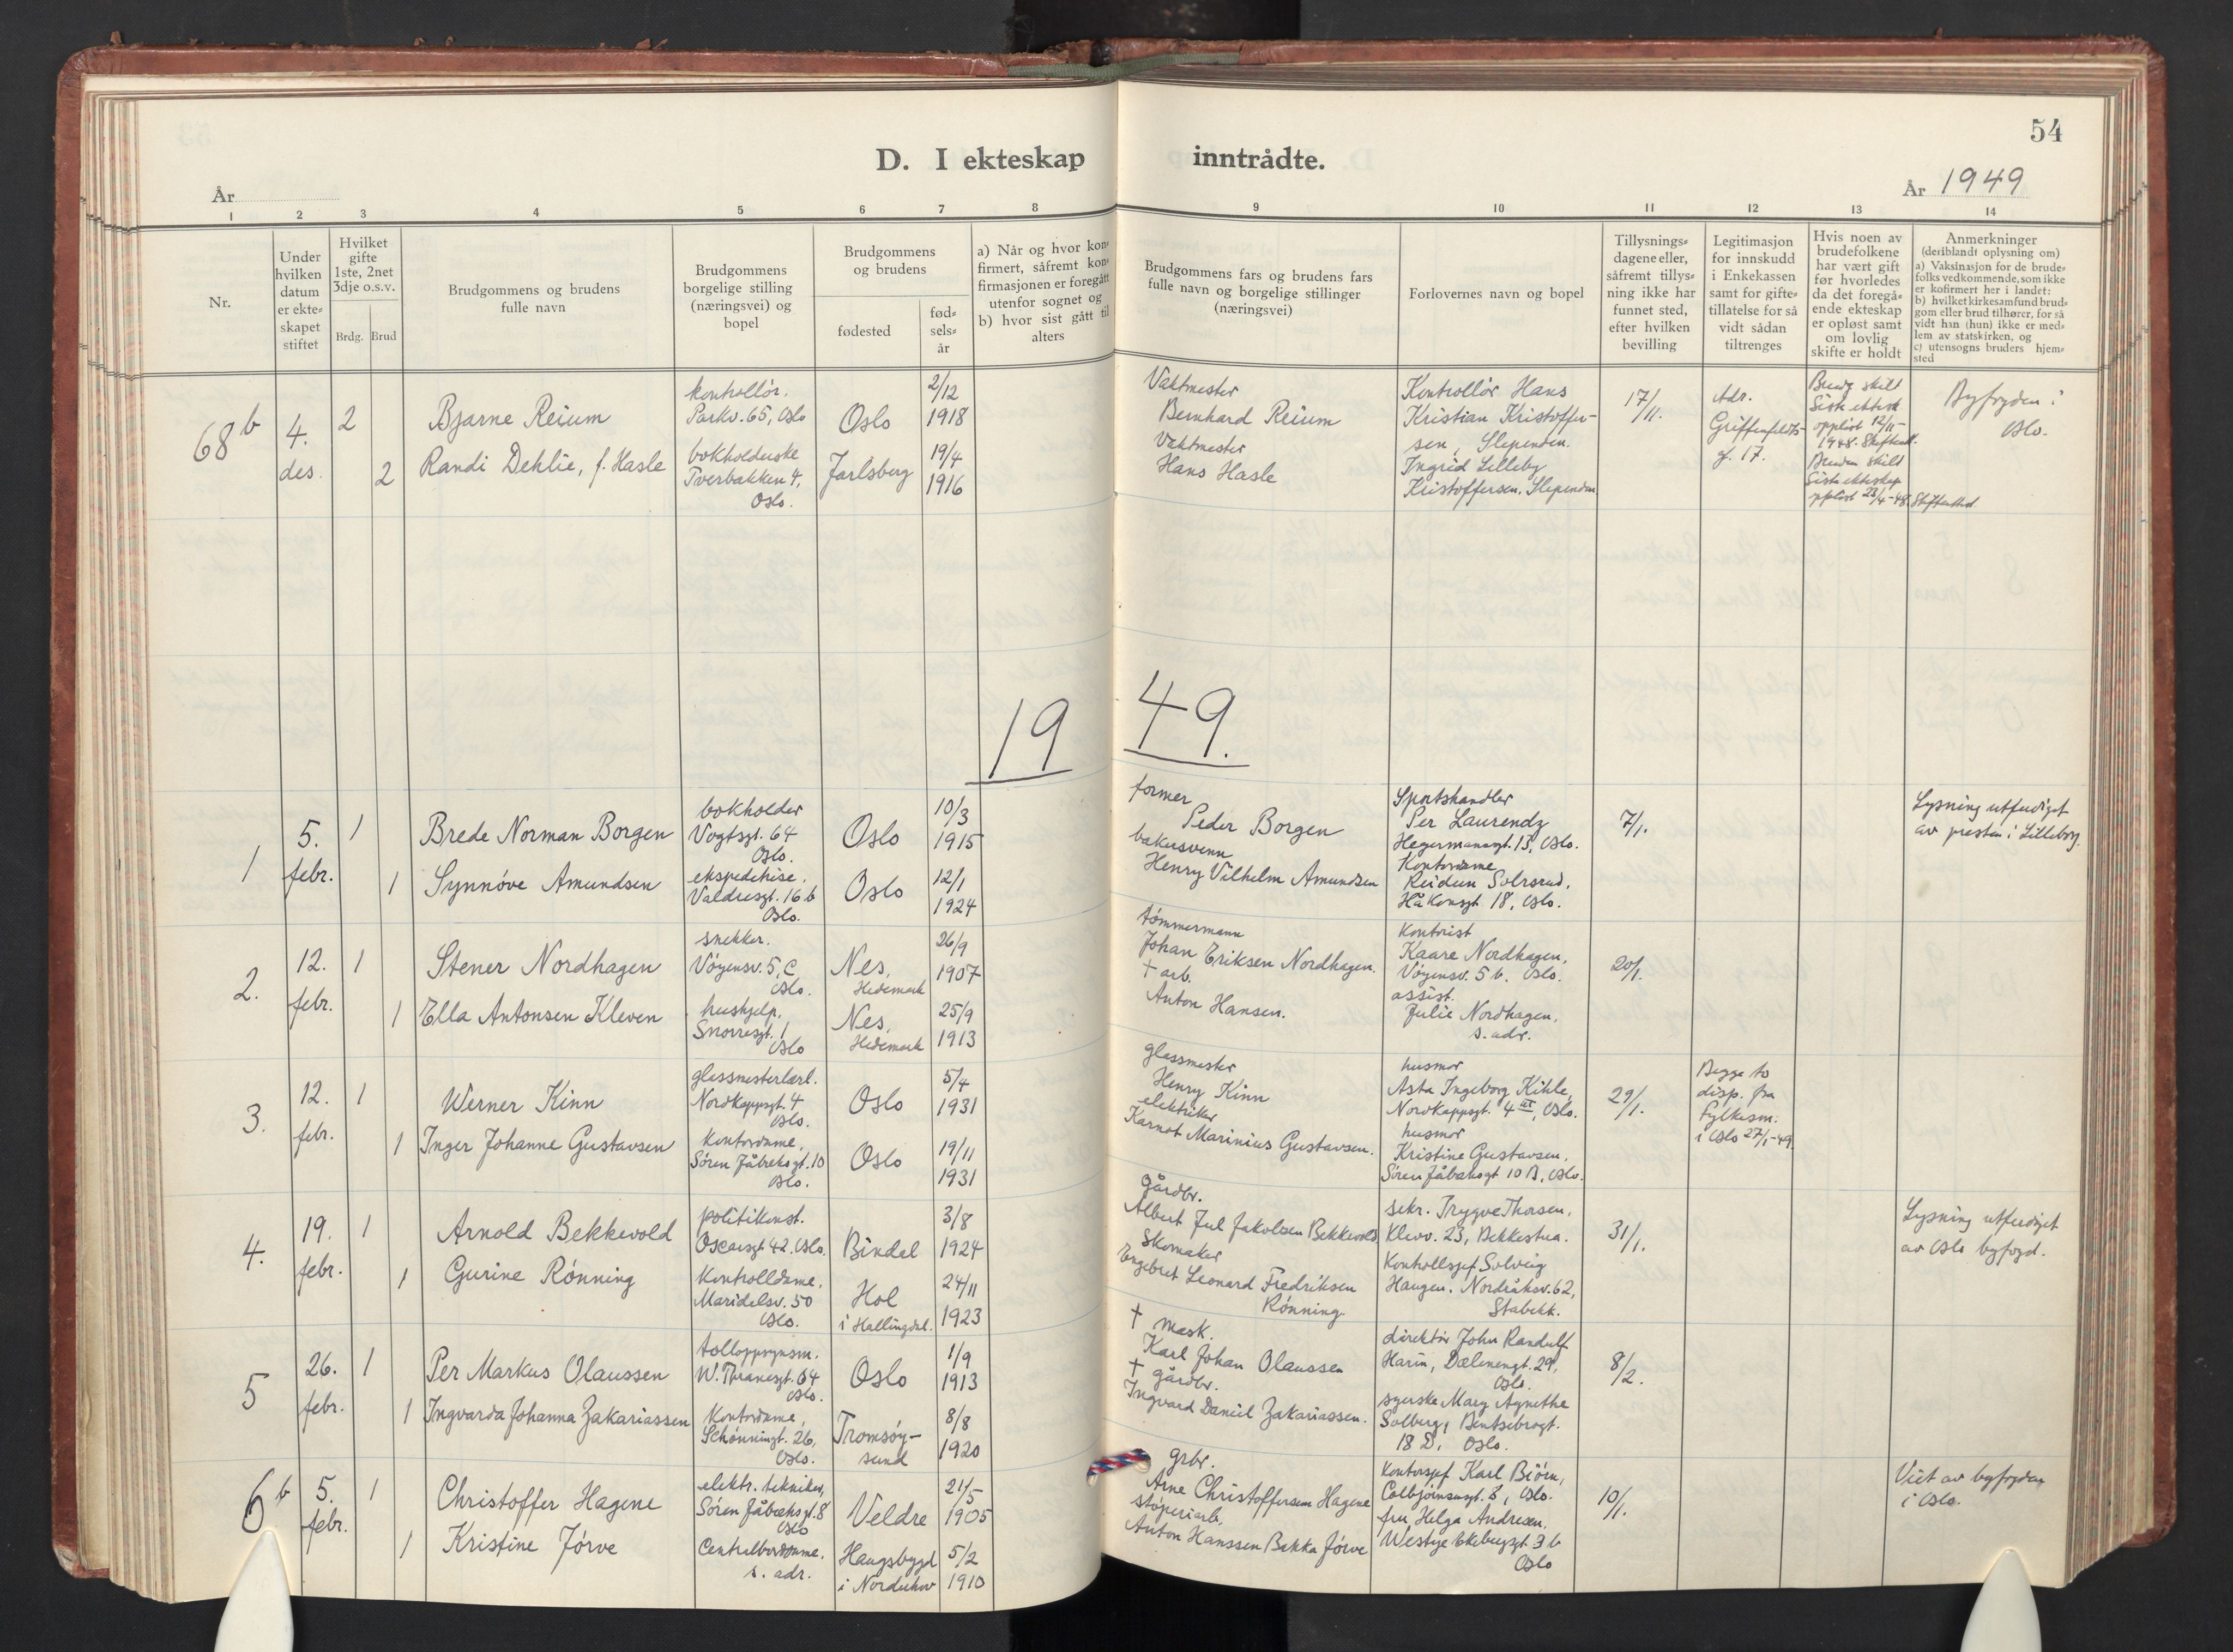 54
D. I ekteskap inntrådte.
År
År 1949
1 2 3 4 5 6 7 8 9 10 11 12 13 14
Nr.
Under
hvilken
datum
er ekte-
skapet
stiftet
Hvilket
gifte
1ste, 2net
3dje o.s.v.
Brdg. Brud
Brudgommens og brudens
fulle navn
Brudgommens
borgelige stilling
(næringsvei) og
bopel
Brudgommens
og brudens
fødested
fød-
sels-
år
a) Når og hvor kon-
firmert, såfremt kon-
firmasjonen er foregått
utenfor sognet og
b) hvor sist gått til
alters
Brudgommens fars og brudens fars
fulle navn og borgelige stillinger
(næringsvei)
Forlovernes navn og bopel
Tillysnings-
dagene eller,
såfremt tillys-
ning ikke har
funnet sted,
efter hvilken
bevilling
Legitimasjon
for innskudd
i Enkekassen
samt for gifte-
tillatelse for så
vidt sådan
tiltrenges
Hvis noen av
brudefolkene
har vært gift
før hvorledes
da det foregå-
ende ekteskap
er opløst samt
om lovlig
skifte er holdt
Anmerkninger
(deriblandt oplysning om)
a) Vaksinasjon for de brude-
folks vedkommende, som ikke
er kofirmert her i landet:
b) hvilket kirkesamfund brud-
gom eller brud tilhører, for så
vidt han (hun) ikke er med-
lem av statskirken, og
c) utensogns bruders hjem-
sted
68b
4.
des.
2
Bjarne Reium
kontrollör.
Parkv. 65, Oslo
Oslo
2/12
1918
2
Randi Dehlie, f. Hasle
bokholderske
Tverbakken 4,
Oslo.
Jarlsberg
19/4
1916
Vaktmester
Bernhard Reium
Vaktmester
Hans Hasle
Kontrollör Hans
Kristian Kristoffer-
sen, Slependen.
Ingrid Lilleby
Kristoffersen. Slependen
17/11.
Adr.
Griffenfeldts-
g. 17.
Brudg skilt
Siste ektesk
oppløst 12/11-
1948. Skifteatt.
Bruden skilt
Siste ekteskap
oppløst 23/4-48. Skifteattest
Byfogden i
Oslo.
19 49.
1
5.
febr.
1
Brede Norman Borgen
bokholder
Vogtsgt. 64
Oslo.
Oslo
10/3
1915
1
Synnöve Amundsen
ekspeditrise.
Valdresgt. 16 b
Oslo.
Oslo
12/1
1924
former
Peder Borgen
bakersvenn
Henry Vilhelm Amundsen
Sportshandler
Per Laurendz
Hegermannsgt. 13, Oslo.
Kontordame
Reidun Solsrud,
Håkonsgt 18, Oslo.
7/1.
Lysning utferdiget
av presten i Lilleborg.
2.
12.
febr.
1
Stener Nordhagen
snekker.
Vöyensv. 5, C
Oslo.
Nes,
Hedemark
26/9
1907
1
Ella Antonsen Kleven
hushjelp.
Snorresgt. 1
Oslo
Nes,
Hedemark
25/9
1913
tömmermann
Johan Eriksen Nordhagen.
† arb.
Anton Hansen.
Kontorist
Kaare Nordhagen,
Vöyensv. 5 b. Oslo.
assist.
Julie Nordhagen,
s. adr.
20/1.
3.
12.
febr.
1
Werner Kinn
glassmesterlærl.
Nordkappgt. 4
Oslo.
Oslo
5/4
1931
1
Inger Johanne Gustavsen
Kontordame,
Sören Jåbæksgt. 10
Oslo.
Oslo
19/11
1931
glassmester
Henry Kinn
elektriker
Karnot Marinius Gustavsen.
husmor
Asta Ingeborg Kihle,
Nordkappgt. 4 III, Oslo.
husmor
Kristine Gustavsen,
Sören Jåbæksgt 10 B, Oslo.
29/1.
Begge to
disp. fra
fylkesm.
i Oslo 27/1-49.
4.
19.
febr.
1
Arnold Bekkevold
politikonst.
Oscarsgt 42. Oslo.
Bindal
3/8
1924
1
Gurine Rönning
Kontrolldame,
Maridalsv. 50
Oslo.
Hol
i Hallingdal.
24/11
1923
gårdbr.
Albert Jul Jakobsen Bekkevold
Skomaker
Engebret Leonard Fredriksen
Rönning.
sekr. Trygve Thorsen,
Klevv. 23, Bekkestua.
Kontrollsjef Solveig
Haugen. Nordråksv. 62,
Stabekk.
31/1.
Lysning utferdiget
av Oslo byfogd.
5
26.
febr.
1
Per Markus Olaussen
tolloppsynsm.
W. Thranesgt. 64
Oslo.
Oslo
1/9
1913
1
Ingvarda Johanna Zakariassen
Kontordame,
Schönningt. 26,
Oslo.
Tromsöy-
sund
8/8
1920
† mask.
Karl Johan Olaussen
† gårdbr.
Ingvard Daniel Zakariassen.
direktör John Randulf
Harin, Dælenengt. 29,
Oslo.
syerske Mary Agnethe
Solberg, Bentsebrogt.
18 D, Oslo.
8/2.
6b
5.
febr.
1
Christoffer Hagene
elektr. tekniker,
Sören Jåbæksgt. 8
Oslo
Veldre
21/5
1905
1
Kristine Jörve
Centralborddame.
s. adr.
Haugsbygd
i Norderhov
5/2
1910
grbr.
Arne Christoffersen Hagene
stöperiarb.
Anton Hanssen Bakka Jörve
Kontorsjef Karl Björn,
Colbjörnsensgt. 8, Oslo.
fru Helga Andresen,
Westye Ekebergsgt. 3 b
Oslo
10/1.
Viet av byfogden
i Oslo.